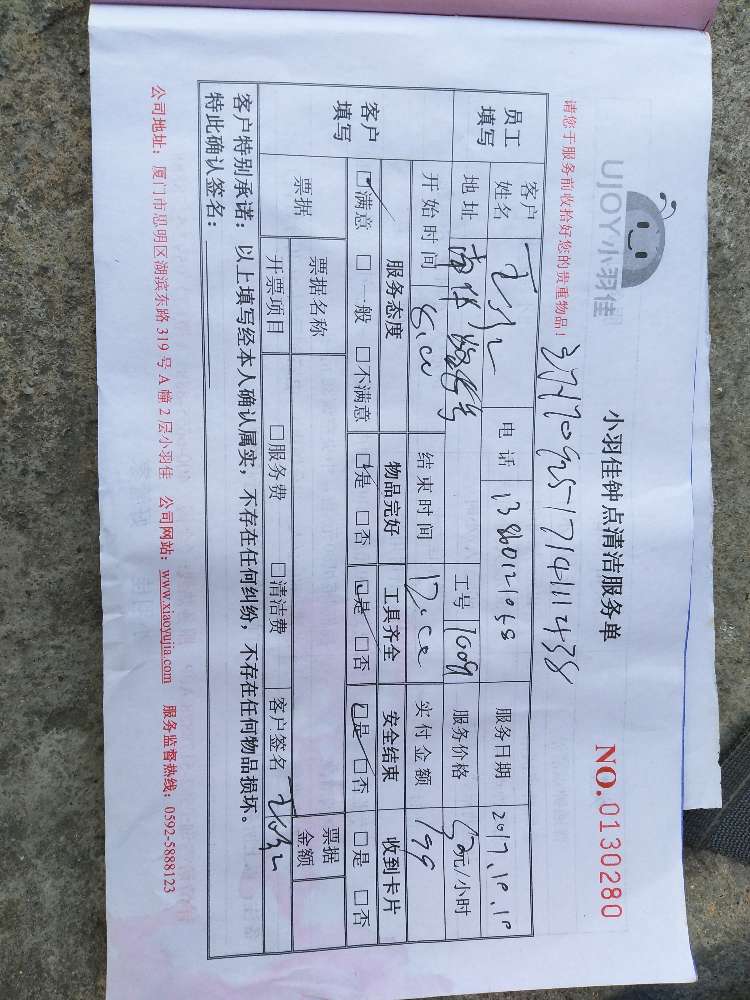 UJOY小羽佳
小羽佳钟点清洁服务单
NO.0130280
请您于服务前收拾好您的贵重物品！
员工填写 客户姓名 电话 服务日期 2017.10.10
地址 工号 1009 服务价格 元/小时
开始时间 结束时间 实付金额 199
客户填写 服务态度 物品完好 工具齐全 安全结束 收到卡片
□满意 □一般 □不满意 □是 □否 □是 □否 □是 □否 □是 □否
票据 票据名称 票据金额
开票项目 □服务费 □清洁费 客户签名
客户特别承诺：以上填写经本人确认属实，不存在任何纠纷，不存在任何物品损坏。
特此确认签名：
公司地址：厦门市思明区湖滨东路 319 号 A 幢 2 层小羽佳 公司网站：www.xiaoyujia.com 服务监督热线：0592-5888123